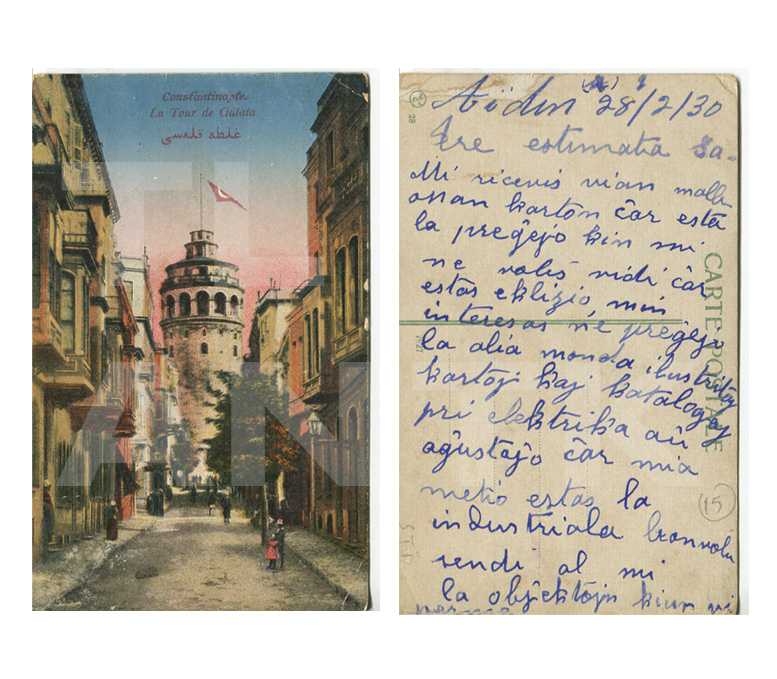 Constantinople.
La Tour de Galata
غلطه قلهسى
Aidin 28/2/30
Tre estimata Sa-
Mi ricevis vian mallu
onan karton ĉar esta
la preĝejo kin mi
ne volis vidi ĉar
estas eklizio min
interesas ne preĝejo
la alia monda ilustritaj
kartoj kaj katalogoj
pri elektrika aŭ
aĝustaĵo ĉar mia
metio estas la
industriala bonvolu
sendi al mi
la objektojn kiun vi
CARTE POSTALE
15